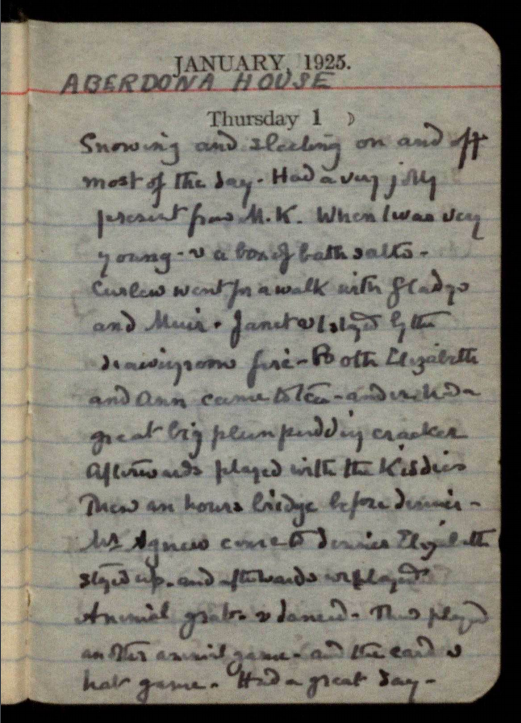 JANUARY, 1925.
ABERDONA HOUSE
Thursday 1
Snowing and sleeting on and off
most of the day. Had a very jolly
present from M.K. When I was very
young - & a box of bath salts -
Curlew went for a walk with Gladys
and Muir. Janet & I stayed by the
drawingroom fire - Both Elizabeth
and Ann came to tea - and we had a
great big plum pudding cracker
Afterwards played with the Kiddies
Then an hours bridge before dinner -
Mr Agnew came to dinner Elizabeth
stayed up - and afterwards we played
Animal grab - & danced - Then played
another animal game - and the card &
hat game - Had a great day -